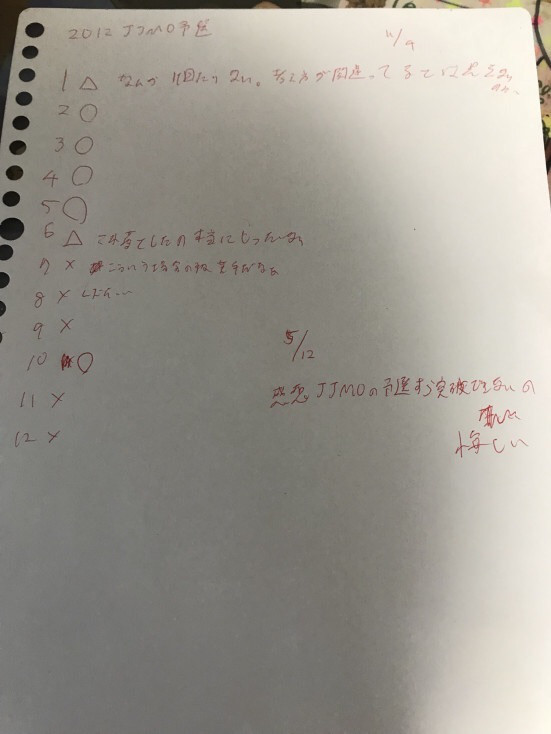 2012 JJMO予選
11/9
1 △ なんか 1個たりない。考え方が間違ってるとは思えない
2 ○
3 ○
4 ○
5 ○
6 △ したの 本当にもったいない
7 × こういう場合の 苦手だなぁ
8 ×
9 ×
10 ○
11 ×
12 ×
5/12
感想 JJMOの予選すら突破できないの
悔しい